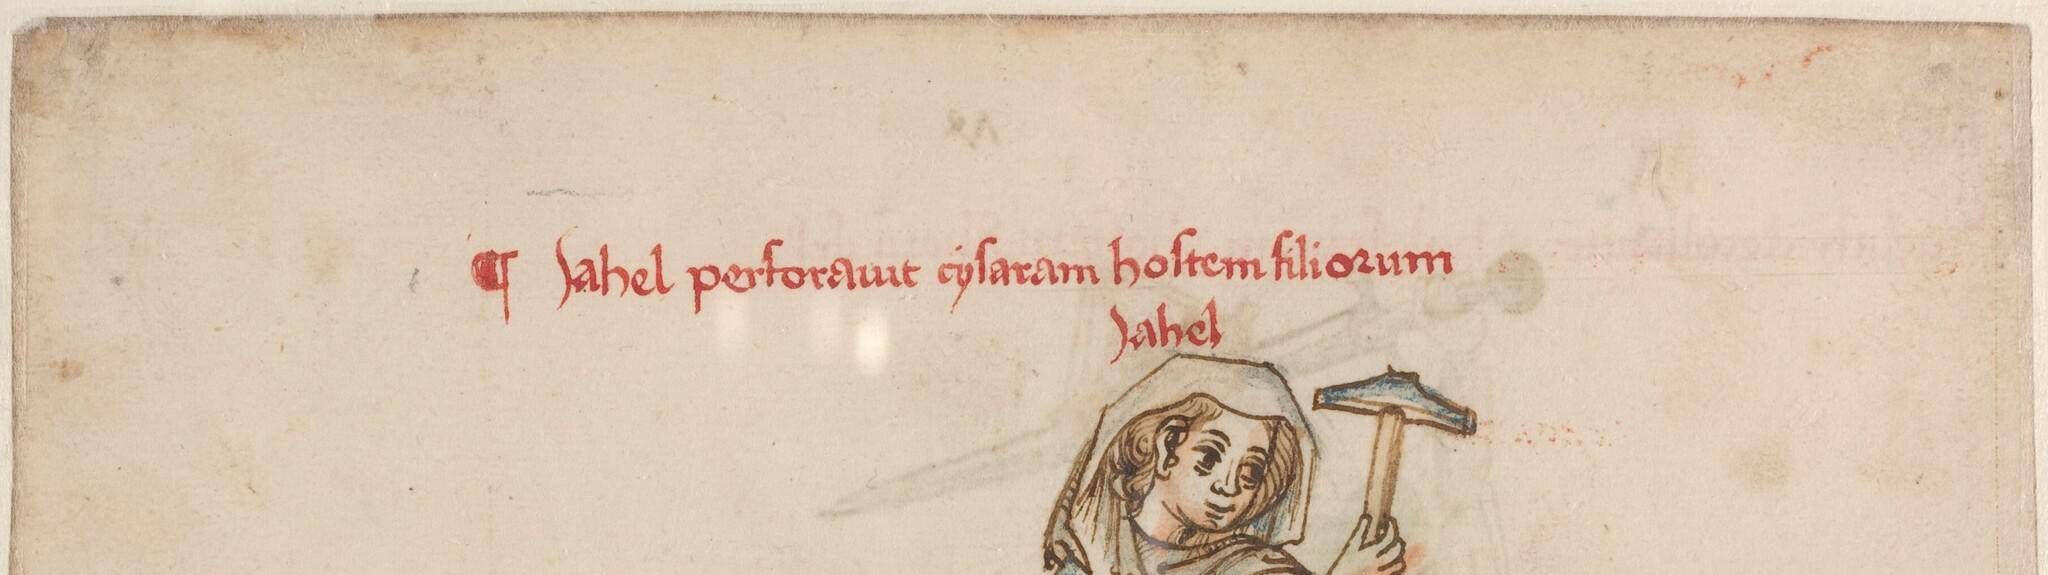 ¶ Jahel perforauit cysaram hostem filiorum
Jahel